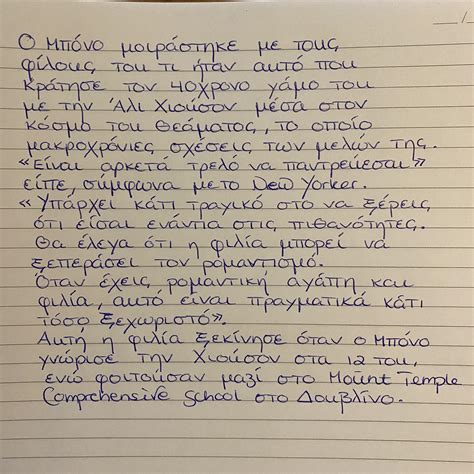 Ο Μπόνο μοιράστηκε με τους
φίλους του τι ήταν αυτό που
κράτησε τον 40χρονο γάμο του
με την Άλι Χιούσον μέσα στον
κόσμο του θεάματος, το οποίο
μακροχρόνιες σχέσεις των μελών της.
«Είναι αρκετά τρελό να παντρεύεσαι»
είπε, σύμφωνα με το New Yorker.
«Υπάρχει κάτι τραγικό στο να ξέρεις
ότι είσαι ενάντια στις πιθανότητες.
Θα έλεγα ότι η φιλία μπορεί να
ξεπεράσει τον ρομαντισμό.
Όταν έχεις ρομαντική αγάπη και
φιλία, αυτό είναι πραγματικά κάτι
τόσο ξεχωριστό».
Αυτή η φιλία ξεκίνησε όταν ο Μπόνο
γνώρισε την Χιούσον στα 12 του,
ενώ φοιτούσαν μαζί στο Mount Temple
Comprehensive School στο Δουβλίνο.